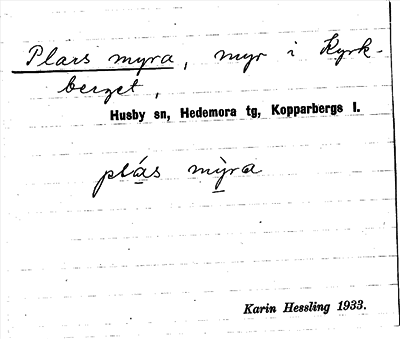 Plars myra, myr i Kyrk-
berget,
Husby sn, Hedemora tg, Kopparbergs l.
plás mỳra
Karin Hessling 1933.